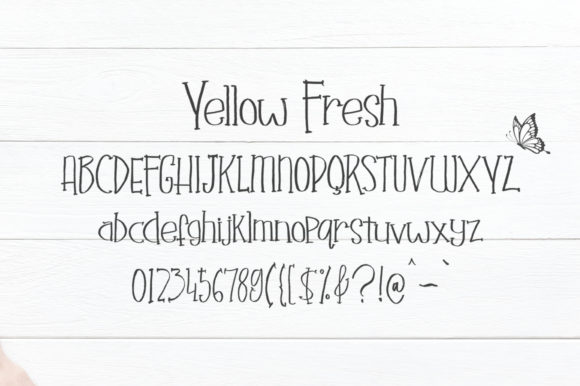 Yellow Fresh
ABCDEFGHIJKLMNOPQRSTUVWXYZ
abcdefghijklmnopqrstuvwxyz
0123456789({[$%&?!@^~`